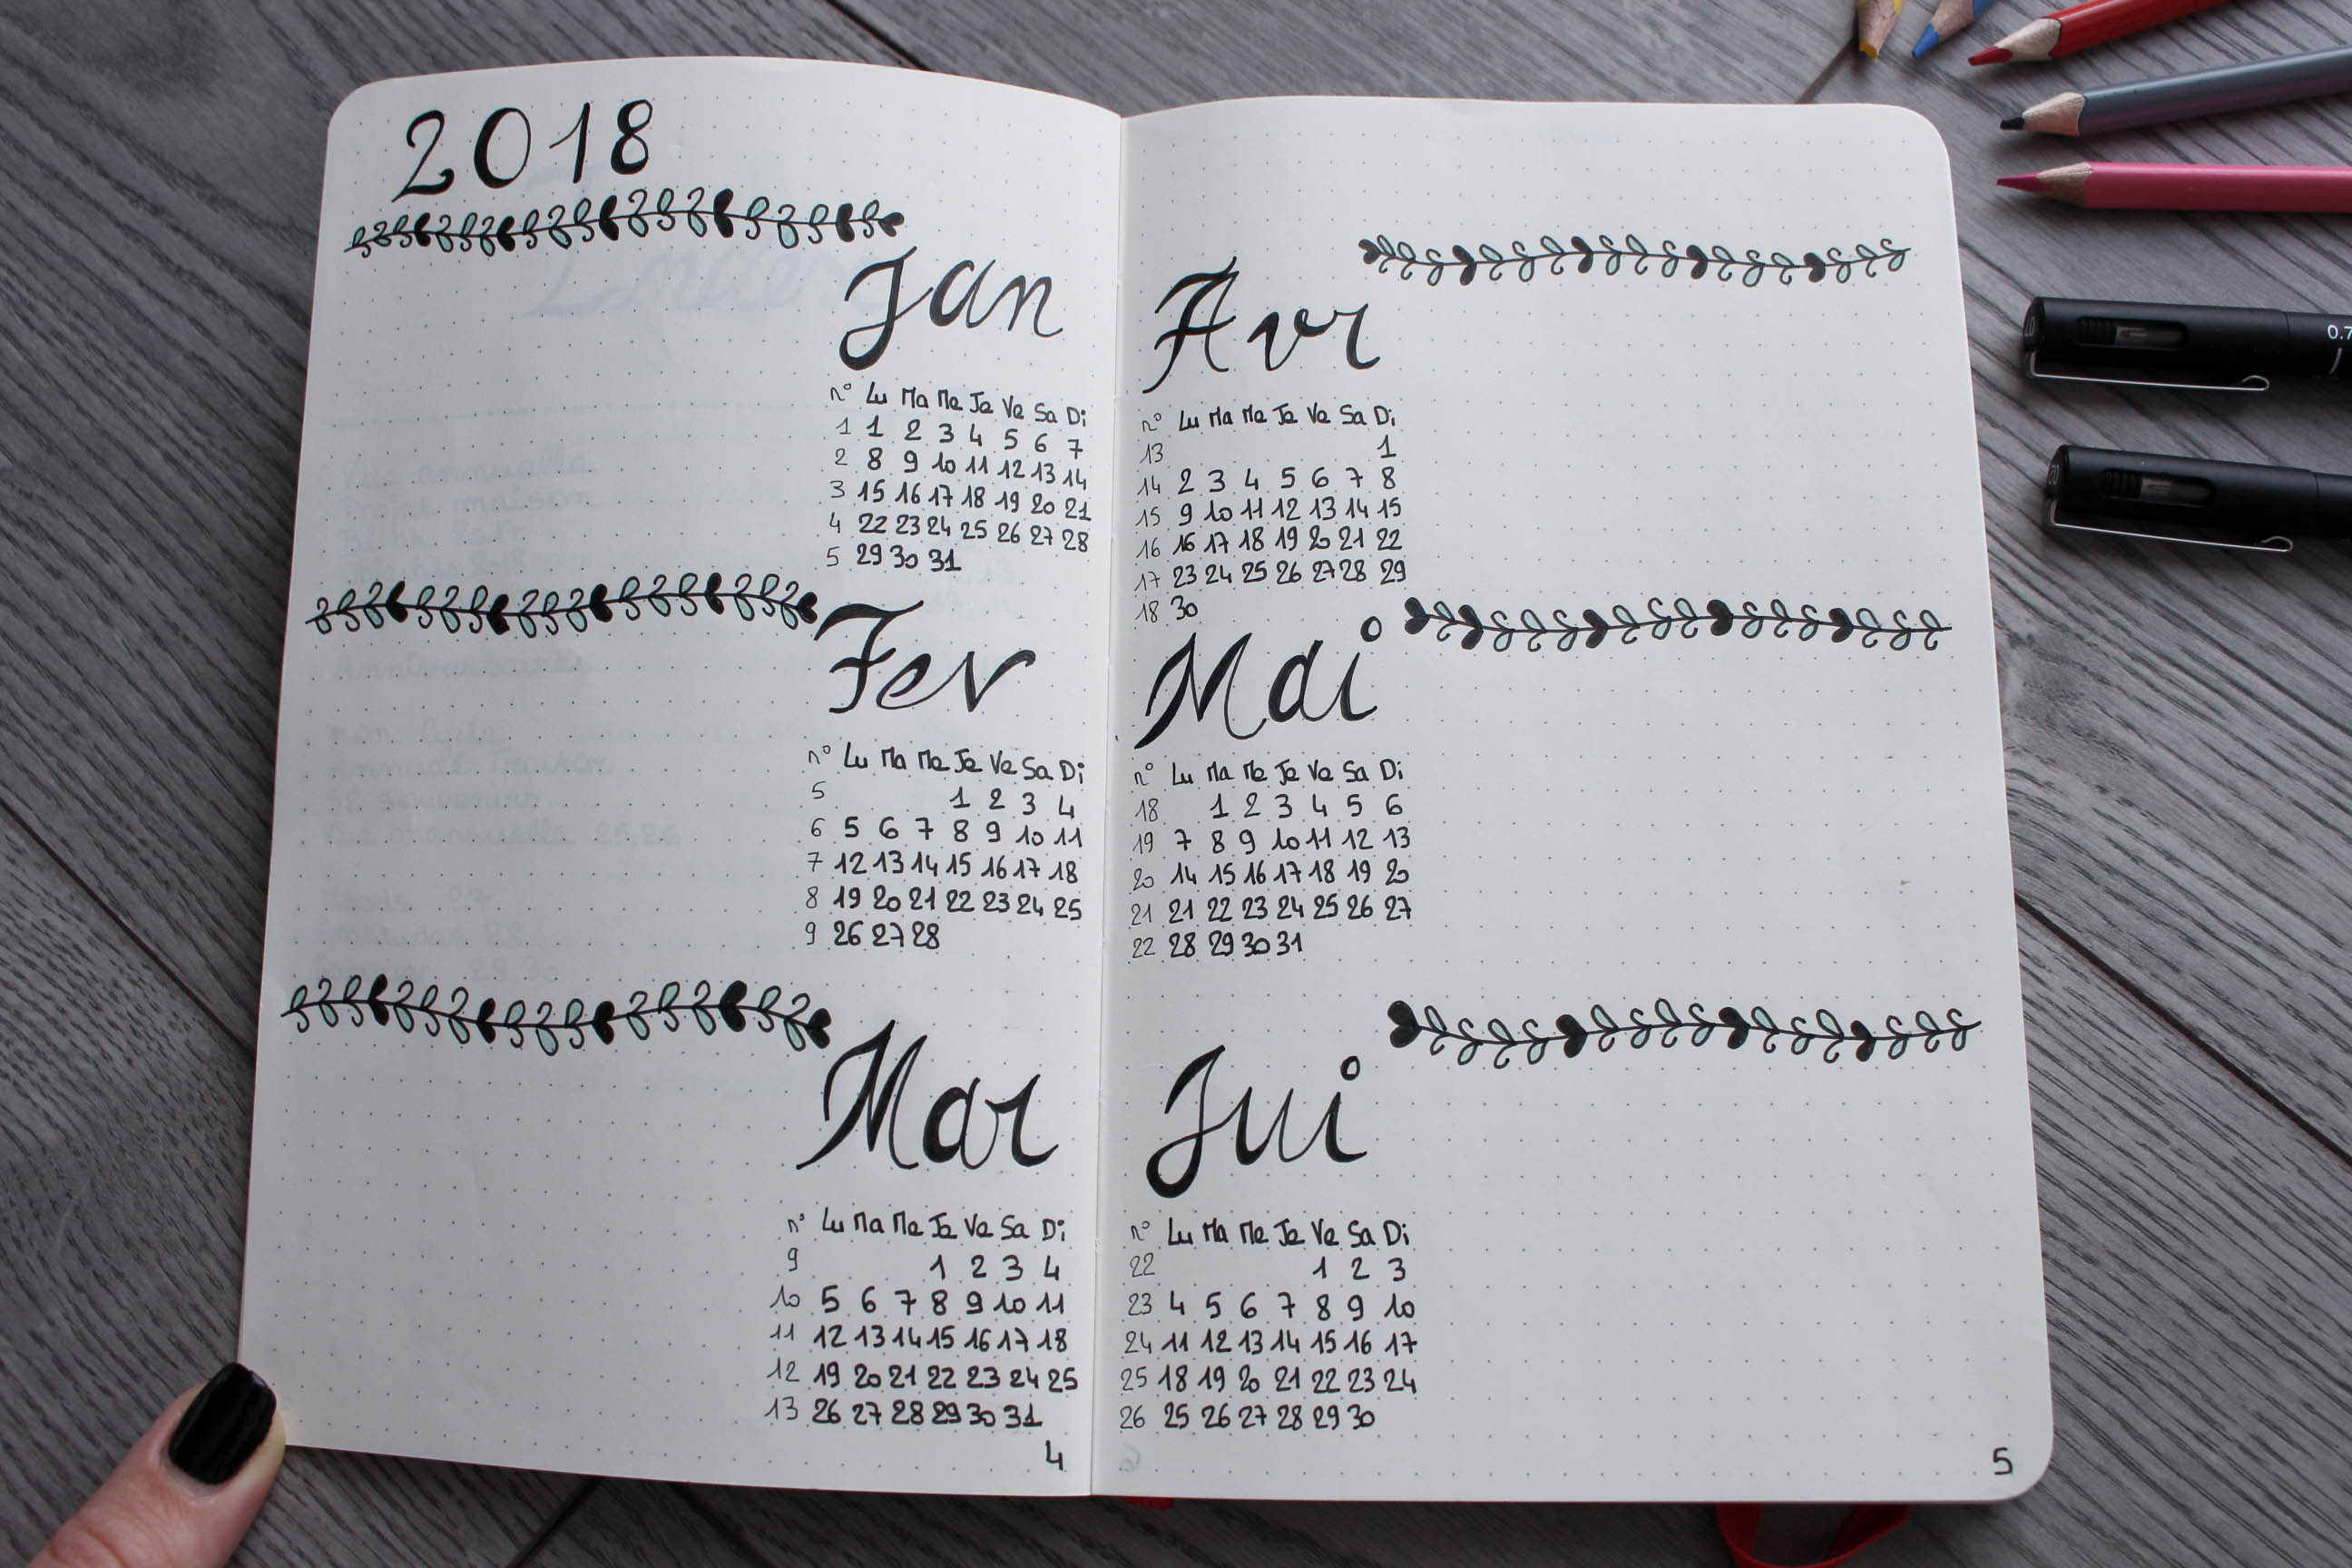 2018
Jan
n° Lu Ma Me Je Ve Sa Di
1 1 2 3 4 5 6 7
2 8 9 10 11 12 13 14
3 15 16 17 18 19 20 21
4 22 23 24 25 26 27 28
5 29 30 31
Fev
n° Lu Ma Me Je Ve Sa Di
5 1 2 3 4
6 5 6 7 8 9 10 11
7 12 13 14 15 16 17 18
8 19 20 21 22 23 24 25
9 26 27 28
Mar
n° Lu Ma Me Je Ve Sa Di
9 1 2 3 4
10 5 6 7 8 9 10 11
11 12 13 14 15 16 17 18
12 19 20 21 22 23 24 25
13 26 27 28 29 30 31
4
Avr
n° Lu Ma Me Je Ve Sa Di
13 1
14 2 3 4 5 6 7 8
15 9 10 11 12 13 14 15
16 16 17 18 19 20 21 22
17 23 24 25 26 27 28 29
18 30
Mai
n° Lu Ma Me Je Ve Sa Di
18 1 2 3 4 5 6
19 7 8 9 10 11 12 13
20 14 15 16 17 18 19 20
21 21 22 23 24 25 26 27
22 28 29 30 31
Jui
n° Lu Ma Me Je Ve Sa Di
22 1 2 3
23 4 5 6 7 8 9 10
24 11 12 13 14 15 16 17
25 18 19 20 21 22 23 24
26 25 26 27 28 29 30
5
0.7